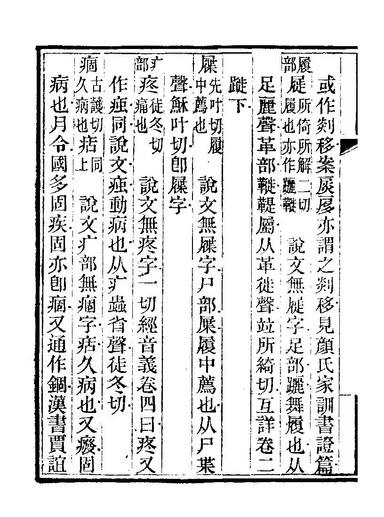 或作剡移案扊扅亦謂之剡移見顔氏家訓書證篇
履部屣所倚所解二切履也亦作躧𩌦　說文無屣字足部躧舞履也从
足麗聲革部𩌦鞮屬从革徙聲竝所綺切互詳卷二
蹝下
屧先叶切履中薦也　說文無屧字尸部屟履中薦也从尸枼
聲穌叶切卽屧字
疒部疼徒冬切痛也　說文無疼字一切經音義卷四曰疼又
作痋同說文痋動病也从疒蟲省聲徒冬切
痼古護切久病也㽽同上　說文疒部無痼字㽽久病也又癈固
病也月令國多固疾固亦卽痼又通作錮漢書賈誼